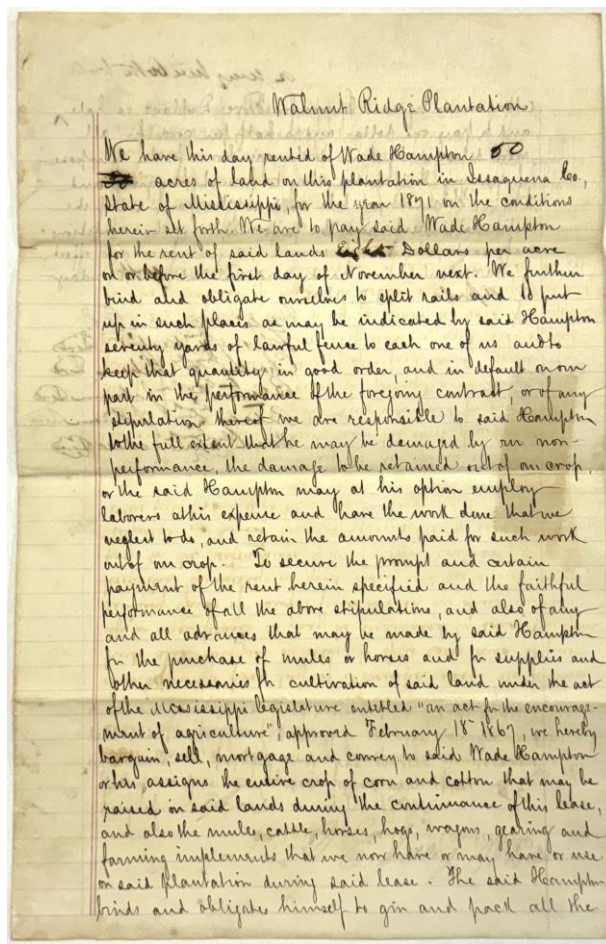 Walnut Ridge Plantation
We have this day rented of Wade Hampton 50
acres of land on this plantation in Issaquena Co,
State of Mississippi, for the year 1871 on the conditions
herein set forth. We are to pay said Wade Hampton
for the rent of said lands Eight Dollars per acre
on or before the first day of November next. We further
bind and obligate ourselves to split rails and to put
up in such places as may be indicated by said Hampton
seventy yards of lawful fence to each one of us and to
keep that quantity in good order, and in default on our
part in the performance of the foregoing contract, or of any
stipulation thereof we are responsible to said Hampton
to the full extent that he may be damaged by our non-
performance, the damage to be retained out of our crop,
or the said Hampton may at his option employ
laborers at his expense and have the work done that we
neglect to do, and retain the amounts paid for such work
out of our crop. To secure the prompt and certain
payment of the rent herein specified and the faithful
performance of all the above stipulations, and also of any
and all advances that may be made by said Hampton
for the purchase of mules or horses and for supplies and
other necessaries for cultivation of said land under the act
of the Mississippi legislature entitled "an act for the encourage-
ment of agriculture", approved February 18 1867, we hereby
bargain, sell, mortgage and convey to said Wade Hampton
or his assigns the entire crop of corn and cotton that may be
raised on said lands during the continuance of this lease,
and also the mules, cattle, horses, hogs, wagons, gearing and
farming implements that we now have or may have or use
on said plantation during said lease. The said Hampton
binds and obligates himself to gin and pack all the